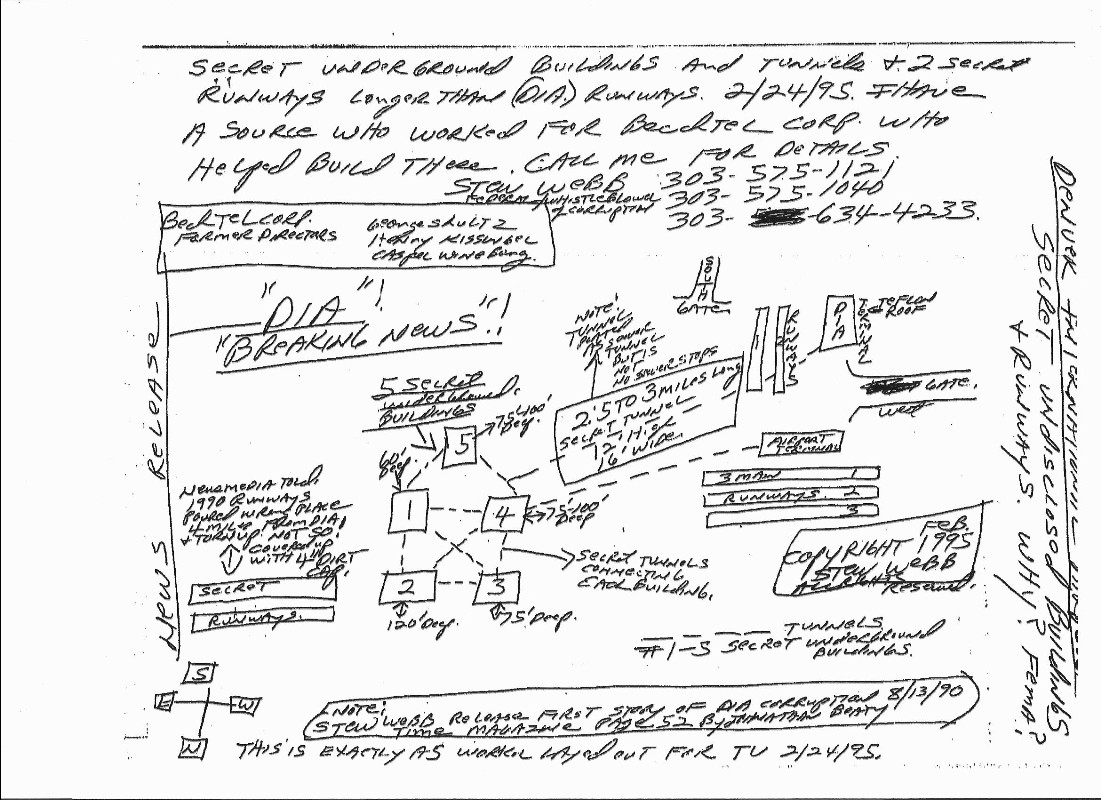 SECRET UNDERGROUND BUILDINGS And TUNNELS + 2 SECRET
RUNWAYS LONGER THAN (DIA) RUNWAYS. 2/24/95. I HAVE
A SOURCE WHO WORKED FOR BECHTEL CORP. WHO
HELPED BUILD THERE. CALL ME FOR DETAILS.
STEW WEBB 303-575-1121
FEDERAL WHISTLEBLOWER 303-575-1040
OF CORRUPTION 303- -634-4233.
BECHTEL CORP.
FORMER DIRECTORS
George SHULTZ
Henry KISSINGEL
CASPEL WINEBURG.
NEWS RELEASE
"DIA"!
"BREAKING NEWS"!
SOUTH
GATE
NOTE!
TUNNEL
AS SEWER
TUNNEL
BUT IS
NOT
NO SEWER STOPS
1
2
RUNWAYS
DIA
TERMINAL
TEFLON
ROOF
GATE.
WEST
2.5 TO 3 MILES Long
SECRET TUNNEL
12' High
16' Wide.
5 SECRET
UNDERGROUND.
BUILDINGS
5
75-100'
Deep.
60'
Deep
1
4
75'-100'
Deep
2
3
120' Deep.
75' Deep.
SECRET TUNNELS
CONNECTING
EACH BUILDING.
AIRPORT
TERMINAL
3 MAIN 1
RUNWAYS. 2
3
NEWSMEDIA TOLD!
1990 RUNWAYS
POURED WRONG PLACE
4 MILES FROM DIA,
+ TORN UP. NOT SO!
COVERED UP
WITH 4" DIRT
CAP.
SECRET
RUNWAYS.
FEB.
COPYRIGHT 1995
STEW WEBB
ALL RIGHTS RESERVED.
TUNNELS
#1-5 SECRET UNDERGROUND
BUILDINGS.
S
E
W
N
NOTE! 8/13/90
STEW WEBB RELEASE FIRST STORY OF DIA CORRUPTION
TIME MAGAZINE PAGE 52 BY JONATHAN BEATY
THIS IS EXACTLY AS LAYED OUT FOR TV 2/24/95.
DENVER INTERNATIONAL
SECRET UNDISCLOSED BUILDINGS
+ RUNWAYS. WHY? FEMA?